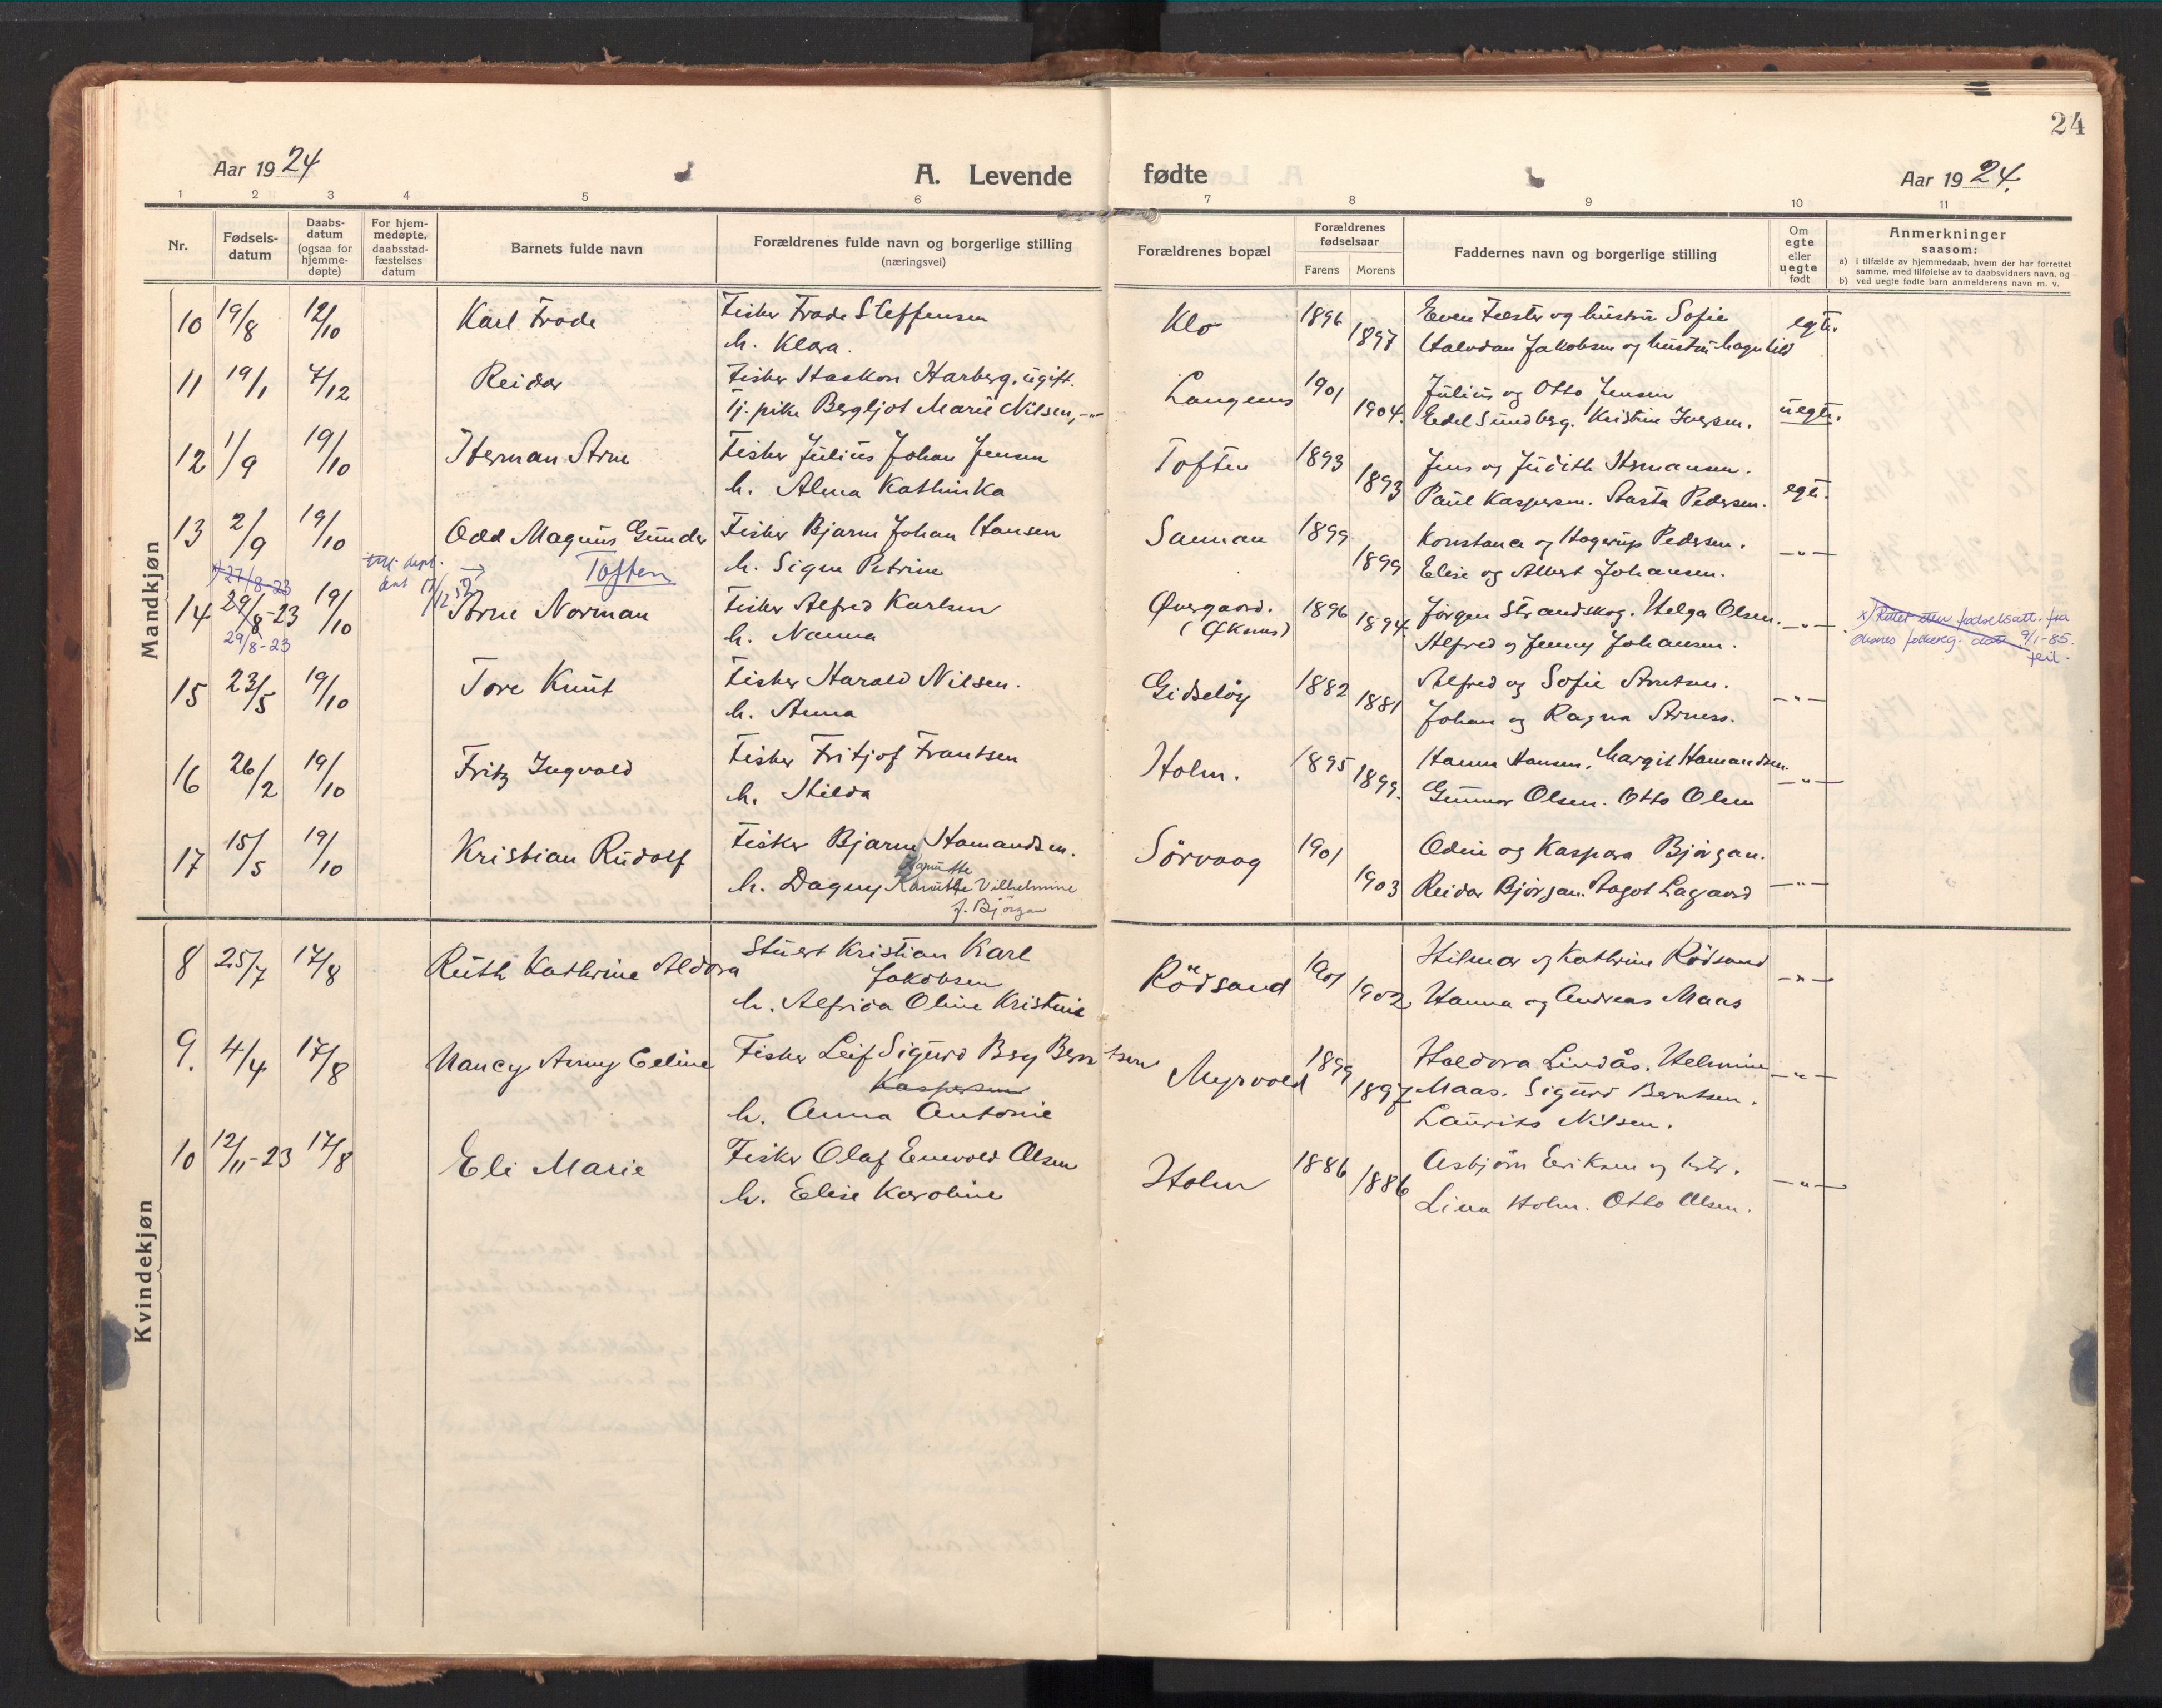 24
Aar 1924
A. Levende fødte
Aar 1924.
1 2 3 4 5 6 7 8 9 10 11
Nr.
Fødsels-
datum
Daabs-
datum
(ogsaa for
hjemme-
døpte)
For hjem-
medøpte,
daabsstad-
fæstelses
datum
Barnets fulde navn
Forældrenes fulde navn og borgerlige stilling
(næringsvei)
Forældrenes bopæl
Forældrenes
fødselsaar
Farens Morens
Faddernes navn og borgerlige stilling
Om
egte
eller
uegte
født
Anmerkninger
saasom:
a) i tilfælde av hjemmedaab, hvem der har forrettet
samme, med tilføielse av to daabsvidners navn, og
b) ved uegte fødte barn anmelderens navn m. v.
Mandkjøn
10 19/8 12/10 Karl Frode Fisker Frode Steffensen Klo 1896 Even Fæster og hustru Sofie egte.
h. Klara. 1897 Halvdan Jakobsen og hustru Magnhild
11 19/1 7/12 Reidar Fisker Haakon Harberg, ugift. Langenes 1901 Julius og Otto Jensen
tj. pike Bergljot Marie Nilsen, -"- 1904. Edel Sundberg. Kristine Iversen. uegte.
12 1/9 19/10 Herman Arne Fisker Julius Johan Jensen Toften 1893 Jens og Judith Hermansen.
h. Alma Kathinka 1893 Paul Kaspersen. Aasta Pedersen. egte.
13 2/9 19/10 Odd Magnus Gunder Fisker Bjarne Johan Hansen Sannan 1899 Konstance og Hagerup Pedersen. -"-
Toften h. Signe Petrine 1899 Elise og Albert Johansen.
x) 27/8-23
14 29/8-23 19/10 Arne Norman Fisker Alfred Karlsen Øvergaard. 1896 Jørgen Strandskog. Helga Olsen. -"- x) Rettet etter fødselsatt. fra
29/8-23 h. Nanna (Øksnes) 1894 Alfred og Jenny Johansen. Øksnes folkereg. dat. 9/1-85.
feil.
15 23/5 19/10 Tore Knut Fisker Harald Nilsen. Gidsøy 1882 Alfred og Sofie Arntsen. -"-
h. Anna 1881 Johan og Ragna Arness.
16 26/2 19/10 Fritz Ingvald Fisker Fritjof Frantsen Holm. 1895 Hanna Hansen. Margit Hamandsen. -"-
h. Hilda 1899. Gunnar Olsen. Otto Olsen
17 15/5 19/10 Kristian Rudolf Fisker Bjarne Hamandsen. Sörvaag 1901 Odin og Kaspara Björgan.
h. Dagny Kanutte Vilhelmine 1903 Reidar Björgan. Aagot Lagaard -"-
f. Björgan
Kvindekjøn
8 25/7 17/8 Ruth Kathrine Aldora Stuert Kristian Karl Rödsand 1901 Hilmar og Kathrine Rödsand -"-
Jakobsen
h. Alfrida Oline Kristine 1902 Hanna og Andreas Maas
9. 4/4 17/8 Nancy Anny Celine Fisker Leif Sigurd Berg Berntsen Myrvold 1899 Haldora Lindås. Helmine -"-
Kaspersen 1897 Maas. Sigurd Berntsen.
h. Anna Antonie Laurits Nilsen.
10 12/11-23 17/8 Eli Marie Fisker Olaf Enevold Olsen Holm 1886 Asbjörn Eriksen og hstr.
h. Elise Karoline 1886 Lina Holm. Otto Olsen. -"-